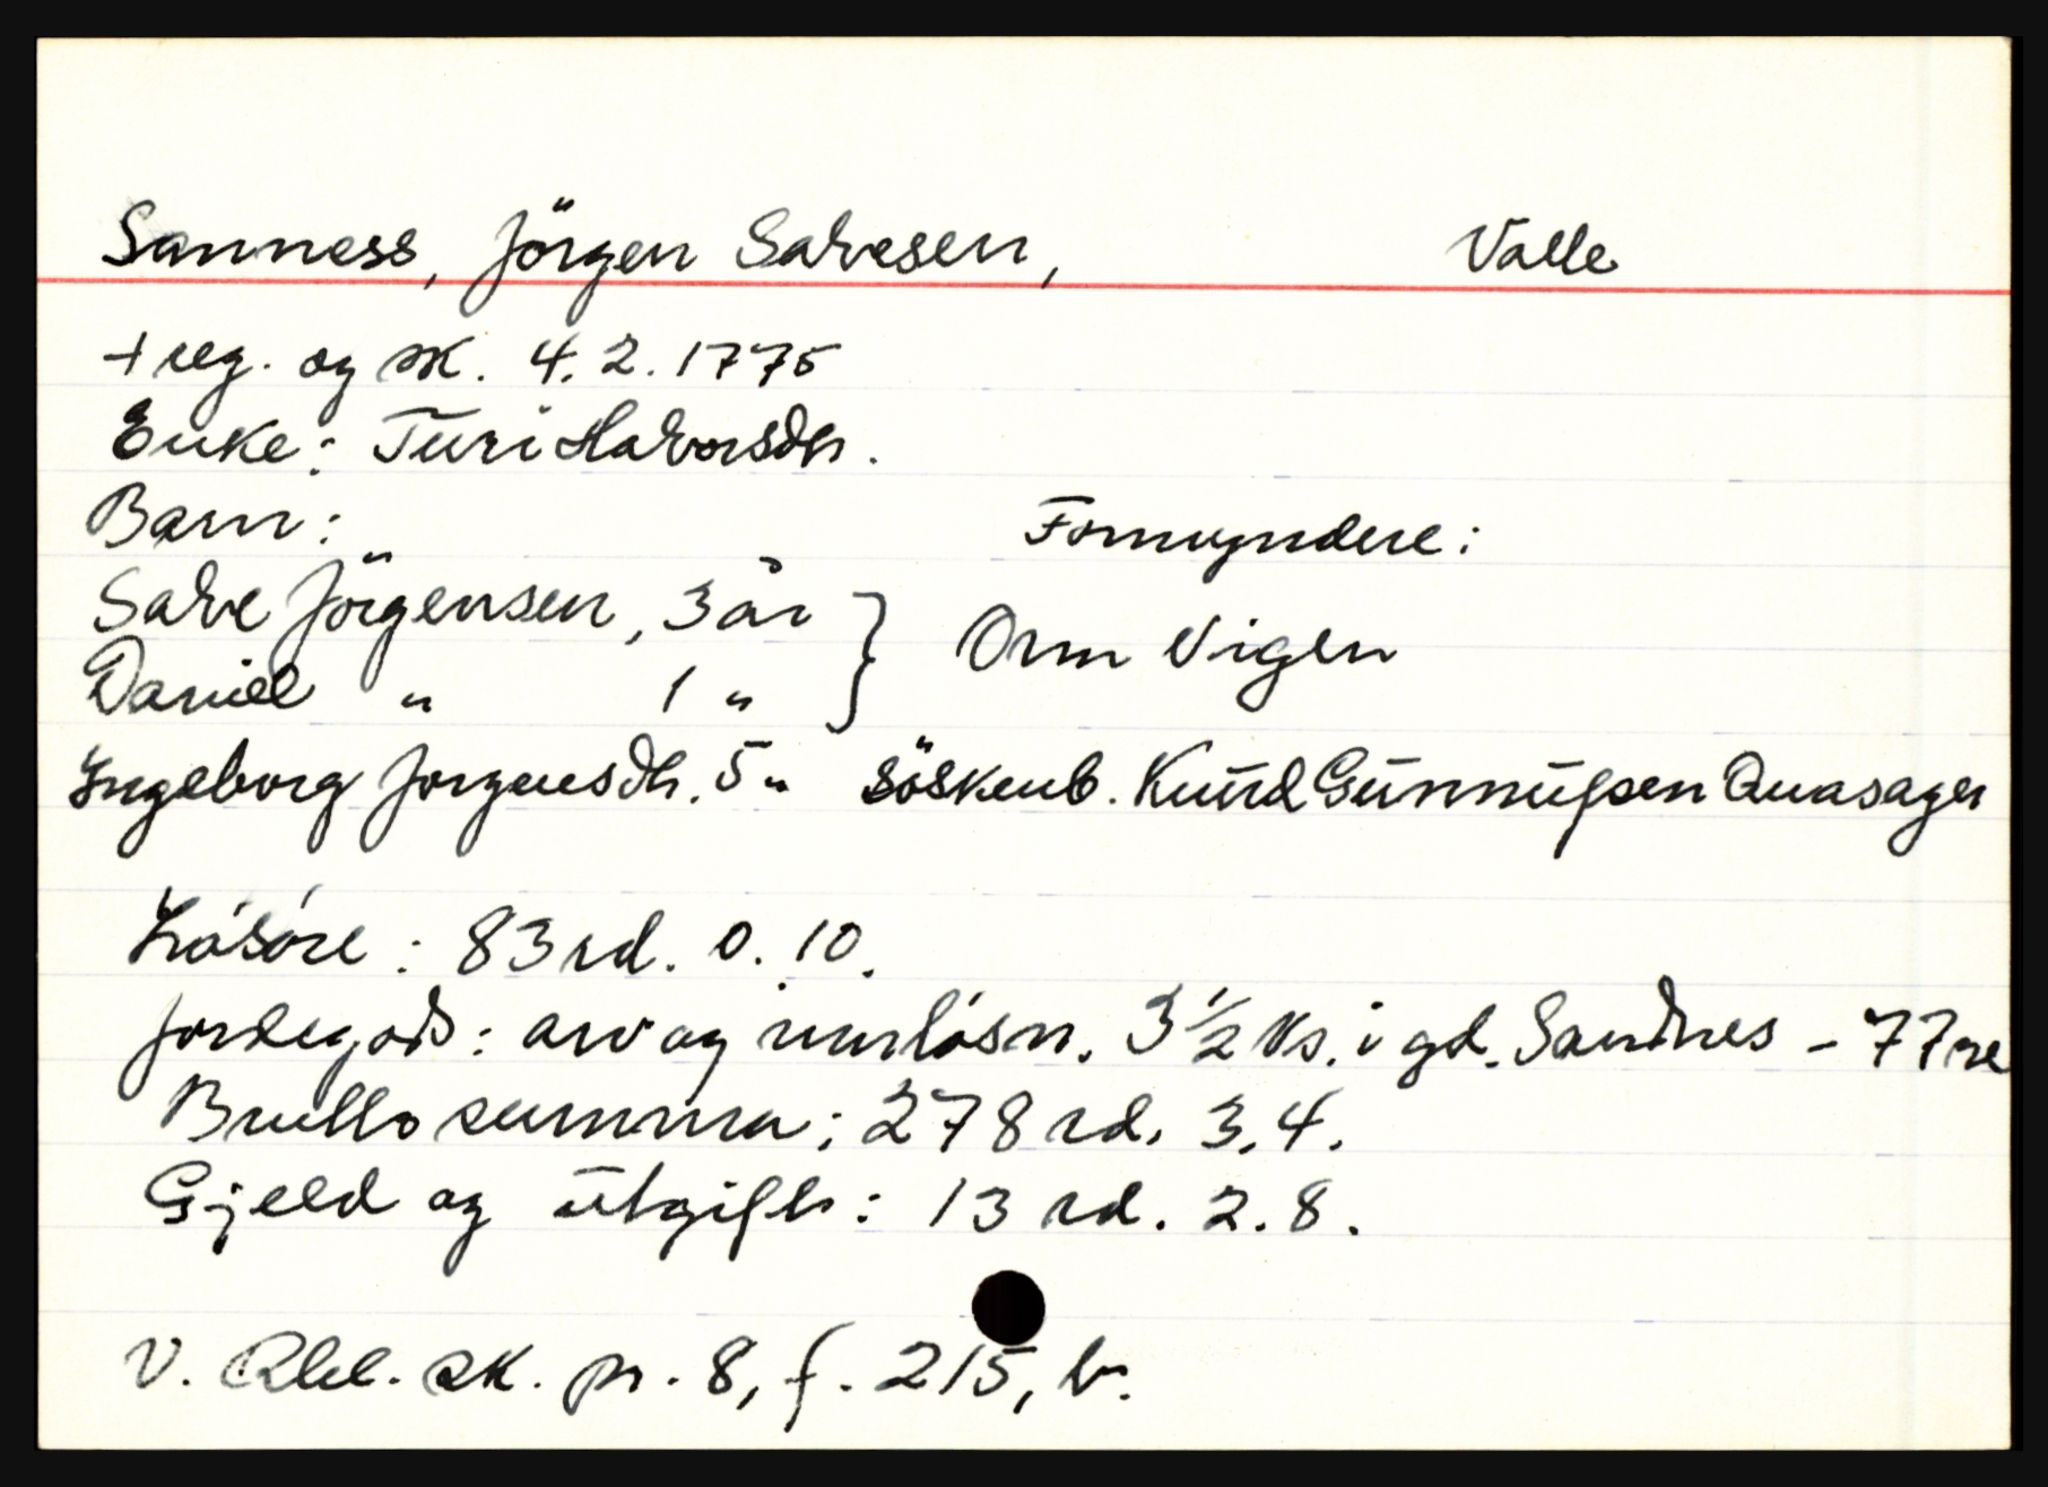 Sanness, Jörgen Salvesen, Valle
+ reg. og sk. 4.2.1775
Enke: Turi Halvorsdtr.
Barn: Formyndere:
Salve Jörgensen, 3 år } Orm Vigen
Daniel " 1 "
Ingeborg Jorgensdtr. 5 " söskenb. Knud Gunnulfsen Quasager
Lösöre: 83 rd. 0. 10.
Jordegods: arv og innlösn. 3 1/2 ks. i gd. Sandnes - 77
Brutto summa: 278 rd. 3. 4.
Gjeld og utgifter: 13 rd. 2. 8.
V. Rbl. sk. pr. 8, f. 215, b.